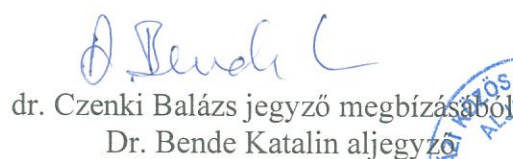 dr. Czenki Balázs jegyző megbízásából
Dr. Bende Katalin aljegyző